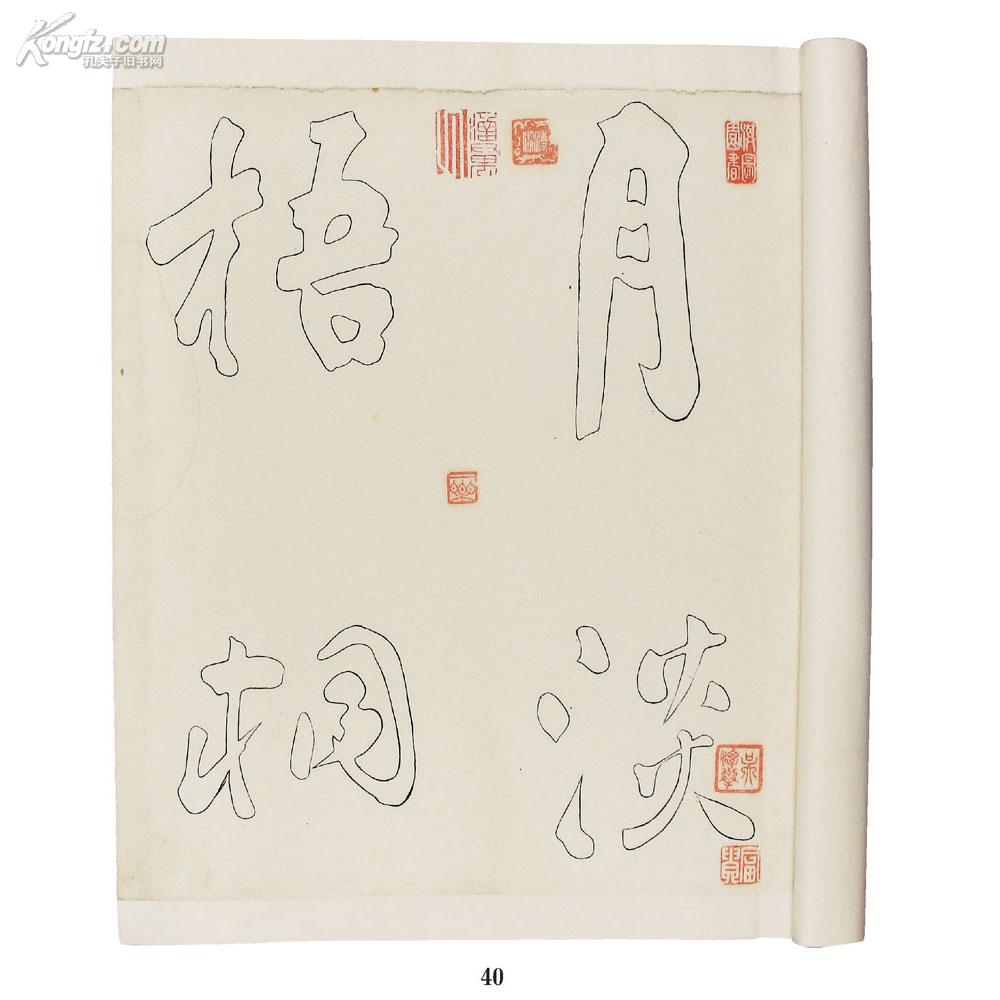 Kongfz.com
孔夫子旧书网
月淡
梧桐
富貴
40